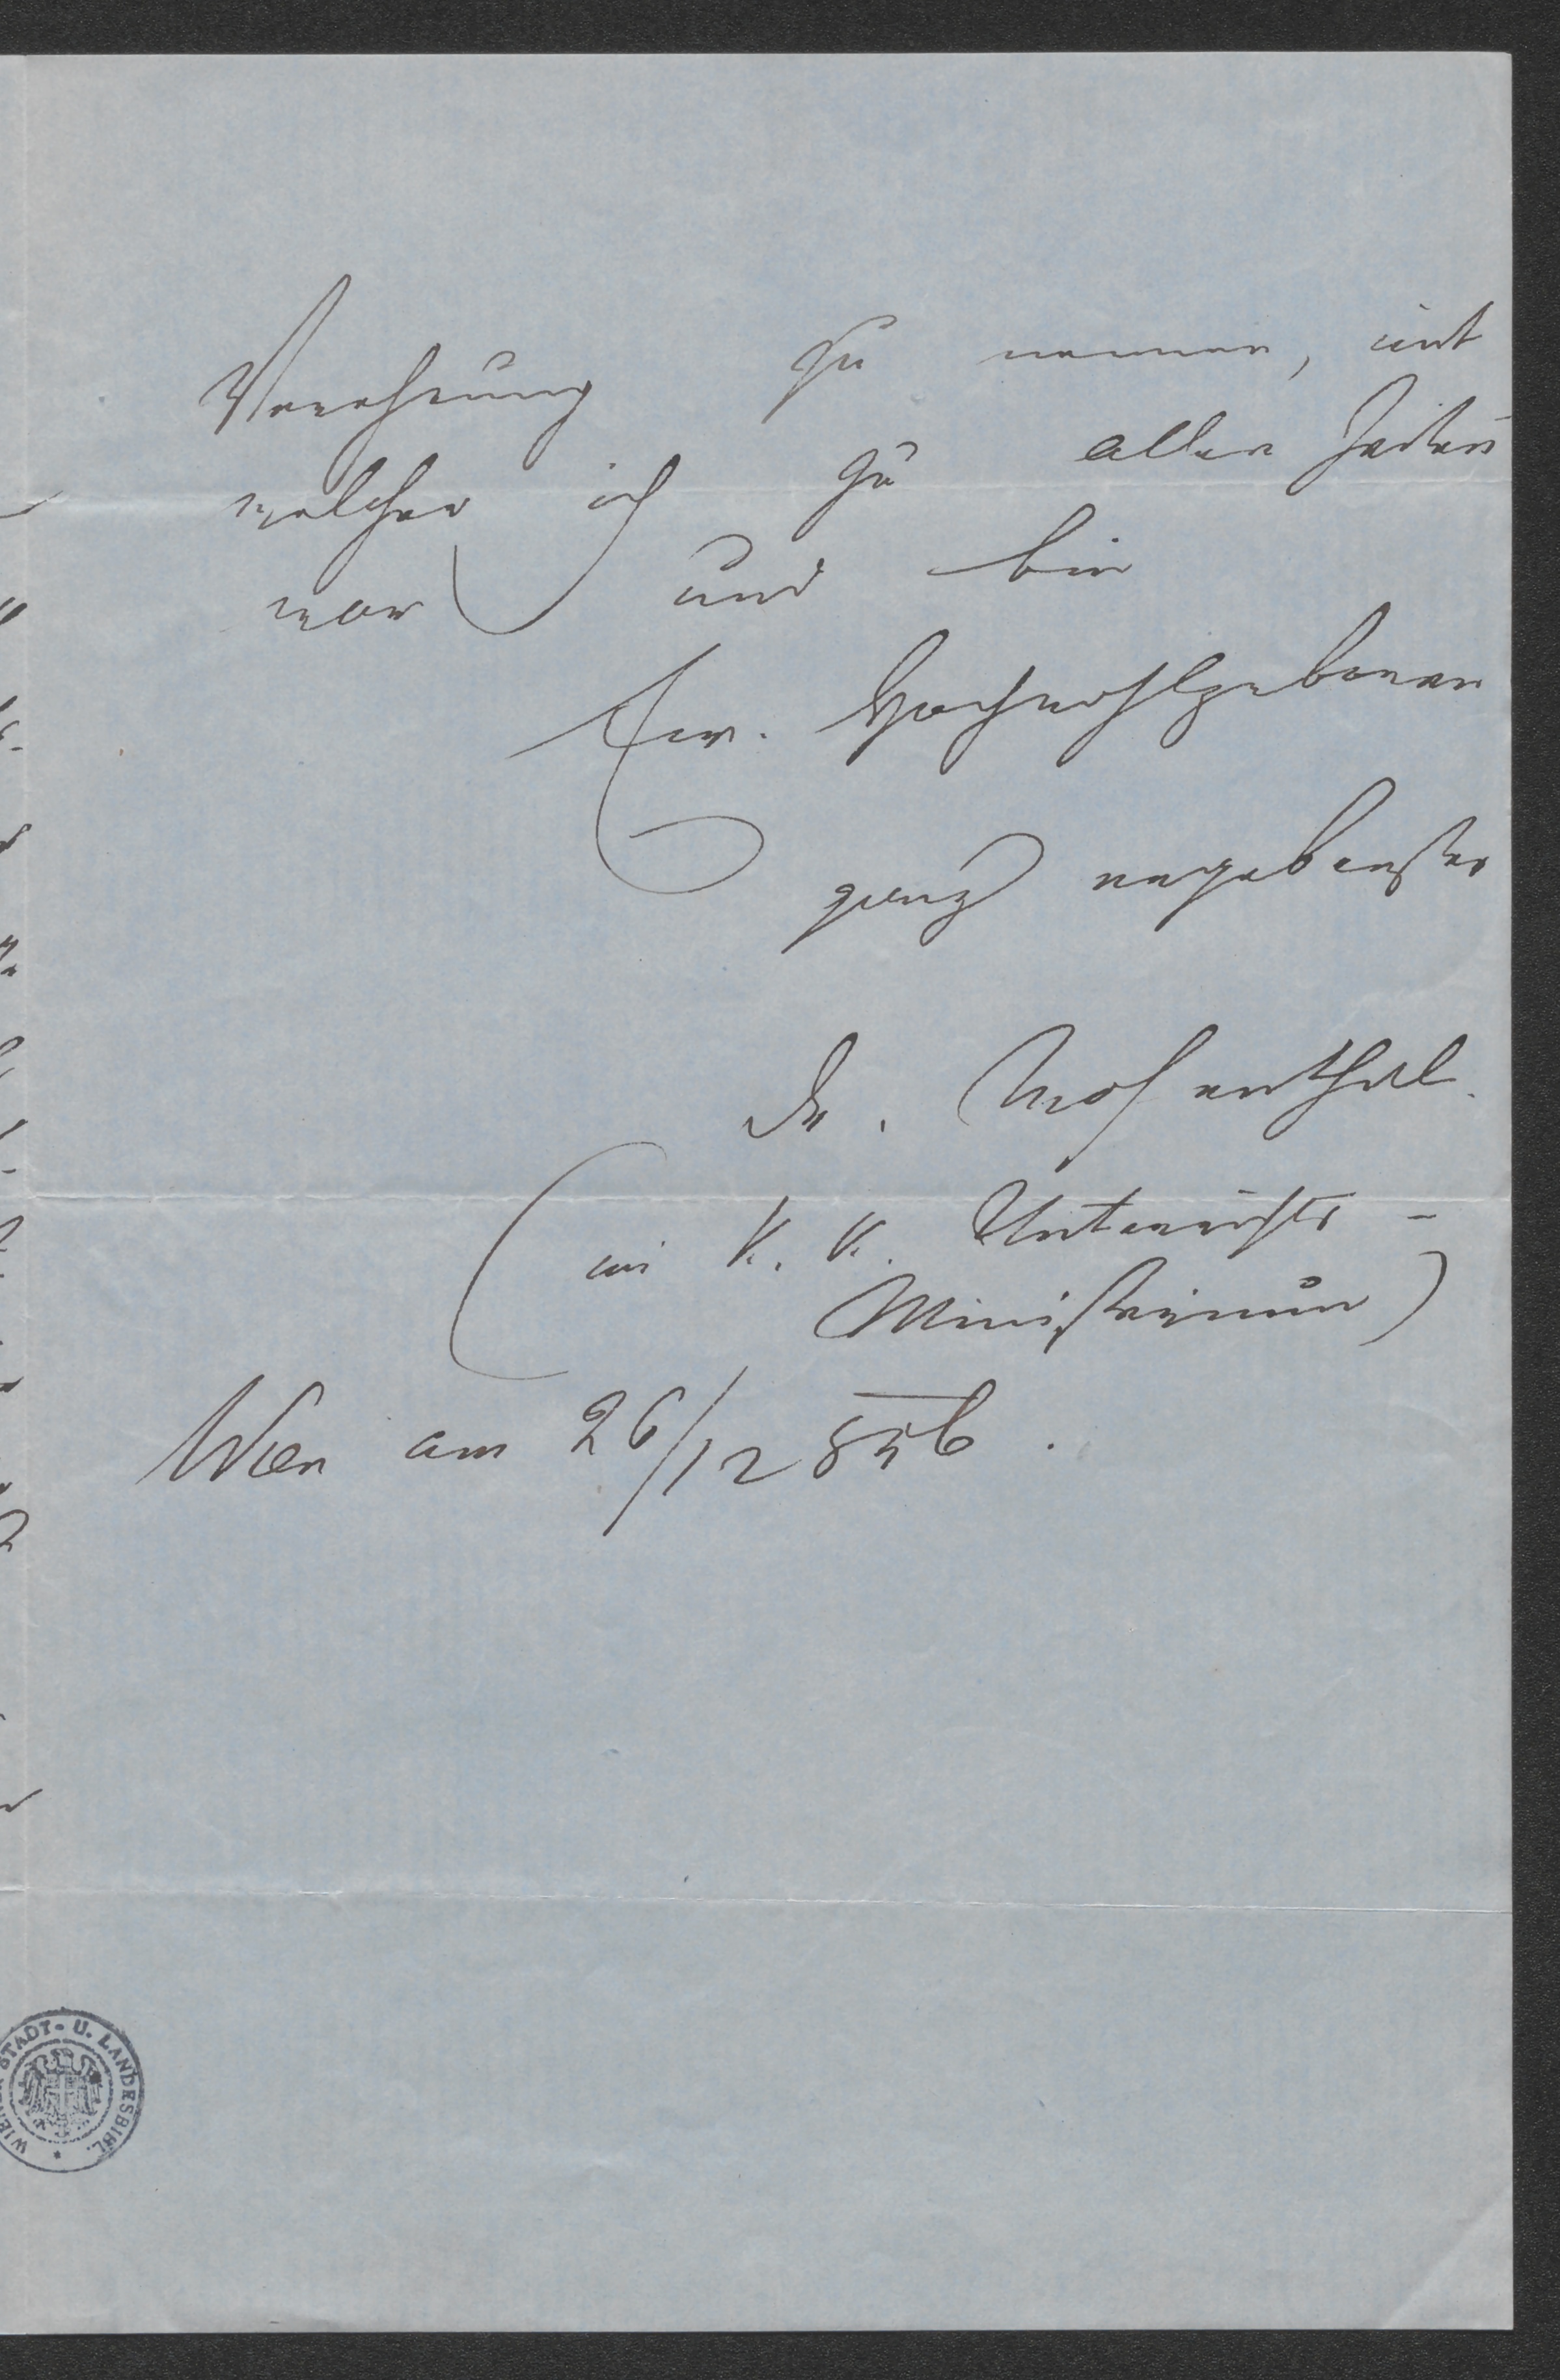 Verehrung zu nennen, mit
welcher ich zu allen Zeiten
war und bin
Ew. Hochwohlgeboren
ganz ergebenster
Dr. Mosenthal.
(im k. k. Unterrichts-
Ministerium)
Wien am 26/12 856.
STADT- U. LANDESBIBL.